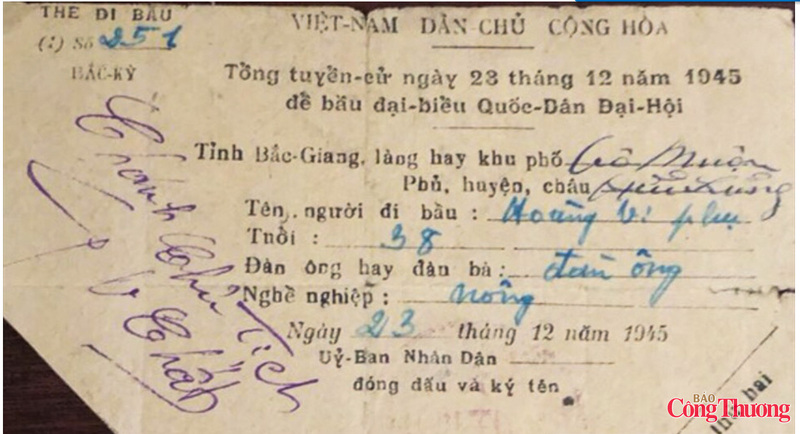 THẺ ĐI BẦU
(:) Số 251
BẮC-KỲ
VIỆT-NAM DÂN CHỦ CỘNG HÒA
Tổng tuyển-cử ngày 23 tháng 12 năm 1945
để bầu đại-biểu Quốc-Dân Đại-Hội
Tỉnh Bắc-Giang, làng hay khu phố
Phủ, huyện, châu Hữu Lũng
Tên người đi bầu : Hoàng vi phụ
Tuổi : 38
Đàn ông hay đàn bà : đàn ông
Nghề nghiệp : nông
Ngày 23 tháng 12 năm 1945
Uỷ-Ban Nhân Dân
đóng dấu và ký tên
Chánh Chủ Tịch
hai
BÁO
Công Thương